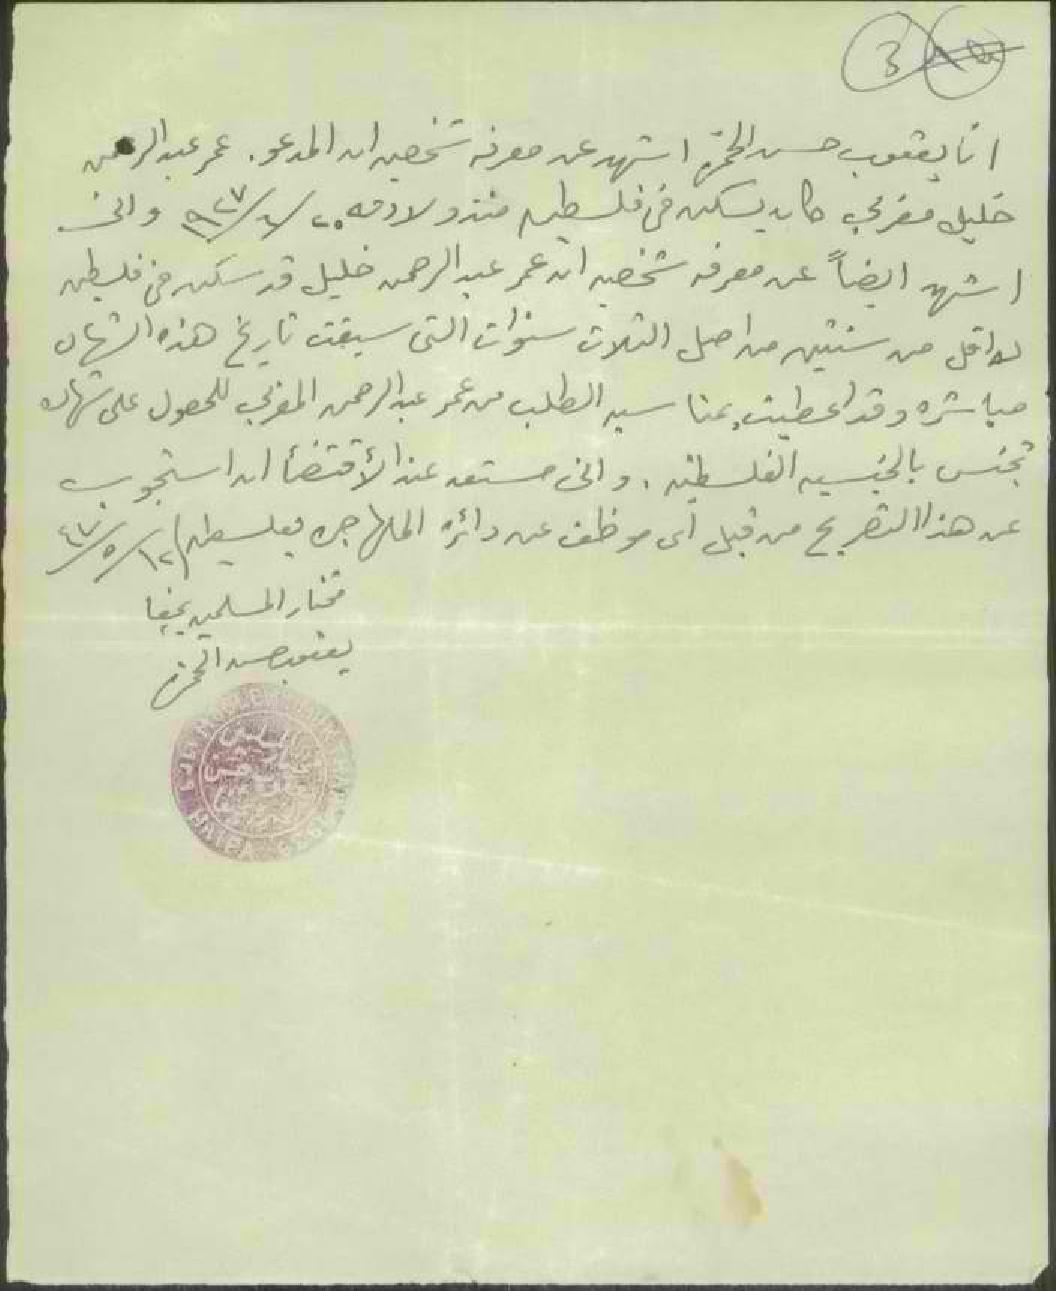 3
انا يعقوب حسن الحمزه اشهد عن معرفه شخصيه ان المدعو. عمر عبد الرحمن
خليل مغربي كان يسكن في فلسطين منذ ولادته ٢٠/٦/١٩٢٧ واني
اشهد ايضاً عن معرفه شخصيه ان عمر عبد الرحمن خليل قد سكن في فلسطين
لا اقل من سنتين من اصل الثلاث سنوات التي سبقت تاريخ هذه الشهاده
مباشره وقد اعطيت بمناسبه الطلب من عمر عبد الرحمن المغربي للحصول على شهاده
تجنس بالجنسيه الفلسطينيه. واني مستعد عند الأقتضأ ان استجوب
عن هذا التصريح من قبل اى موظف عن دائرة المهاجره بفلسطين ١٢/٥/٤٧
مختار المسلمين بحيفا
يعقوب حسن الحمزه
HAIFA